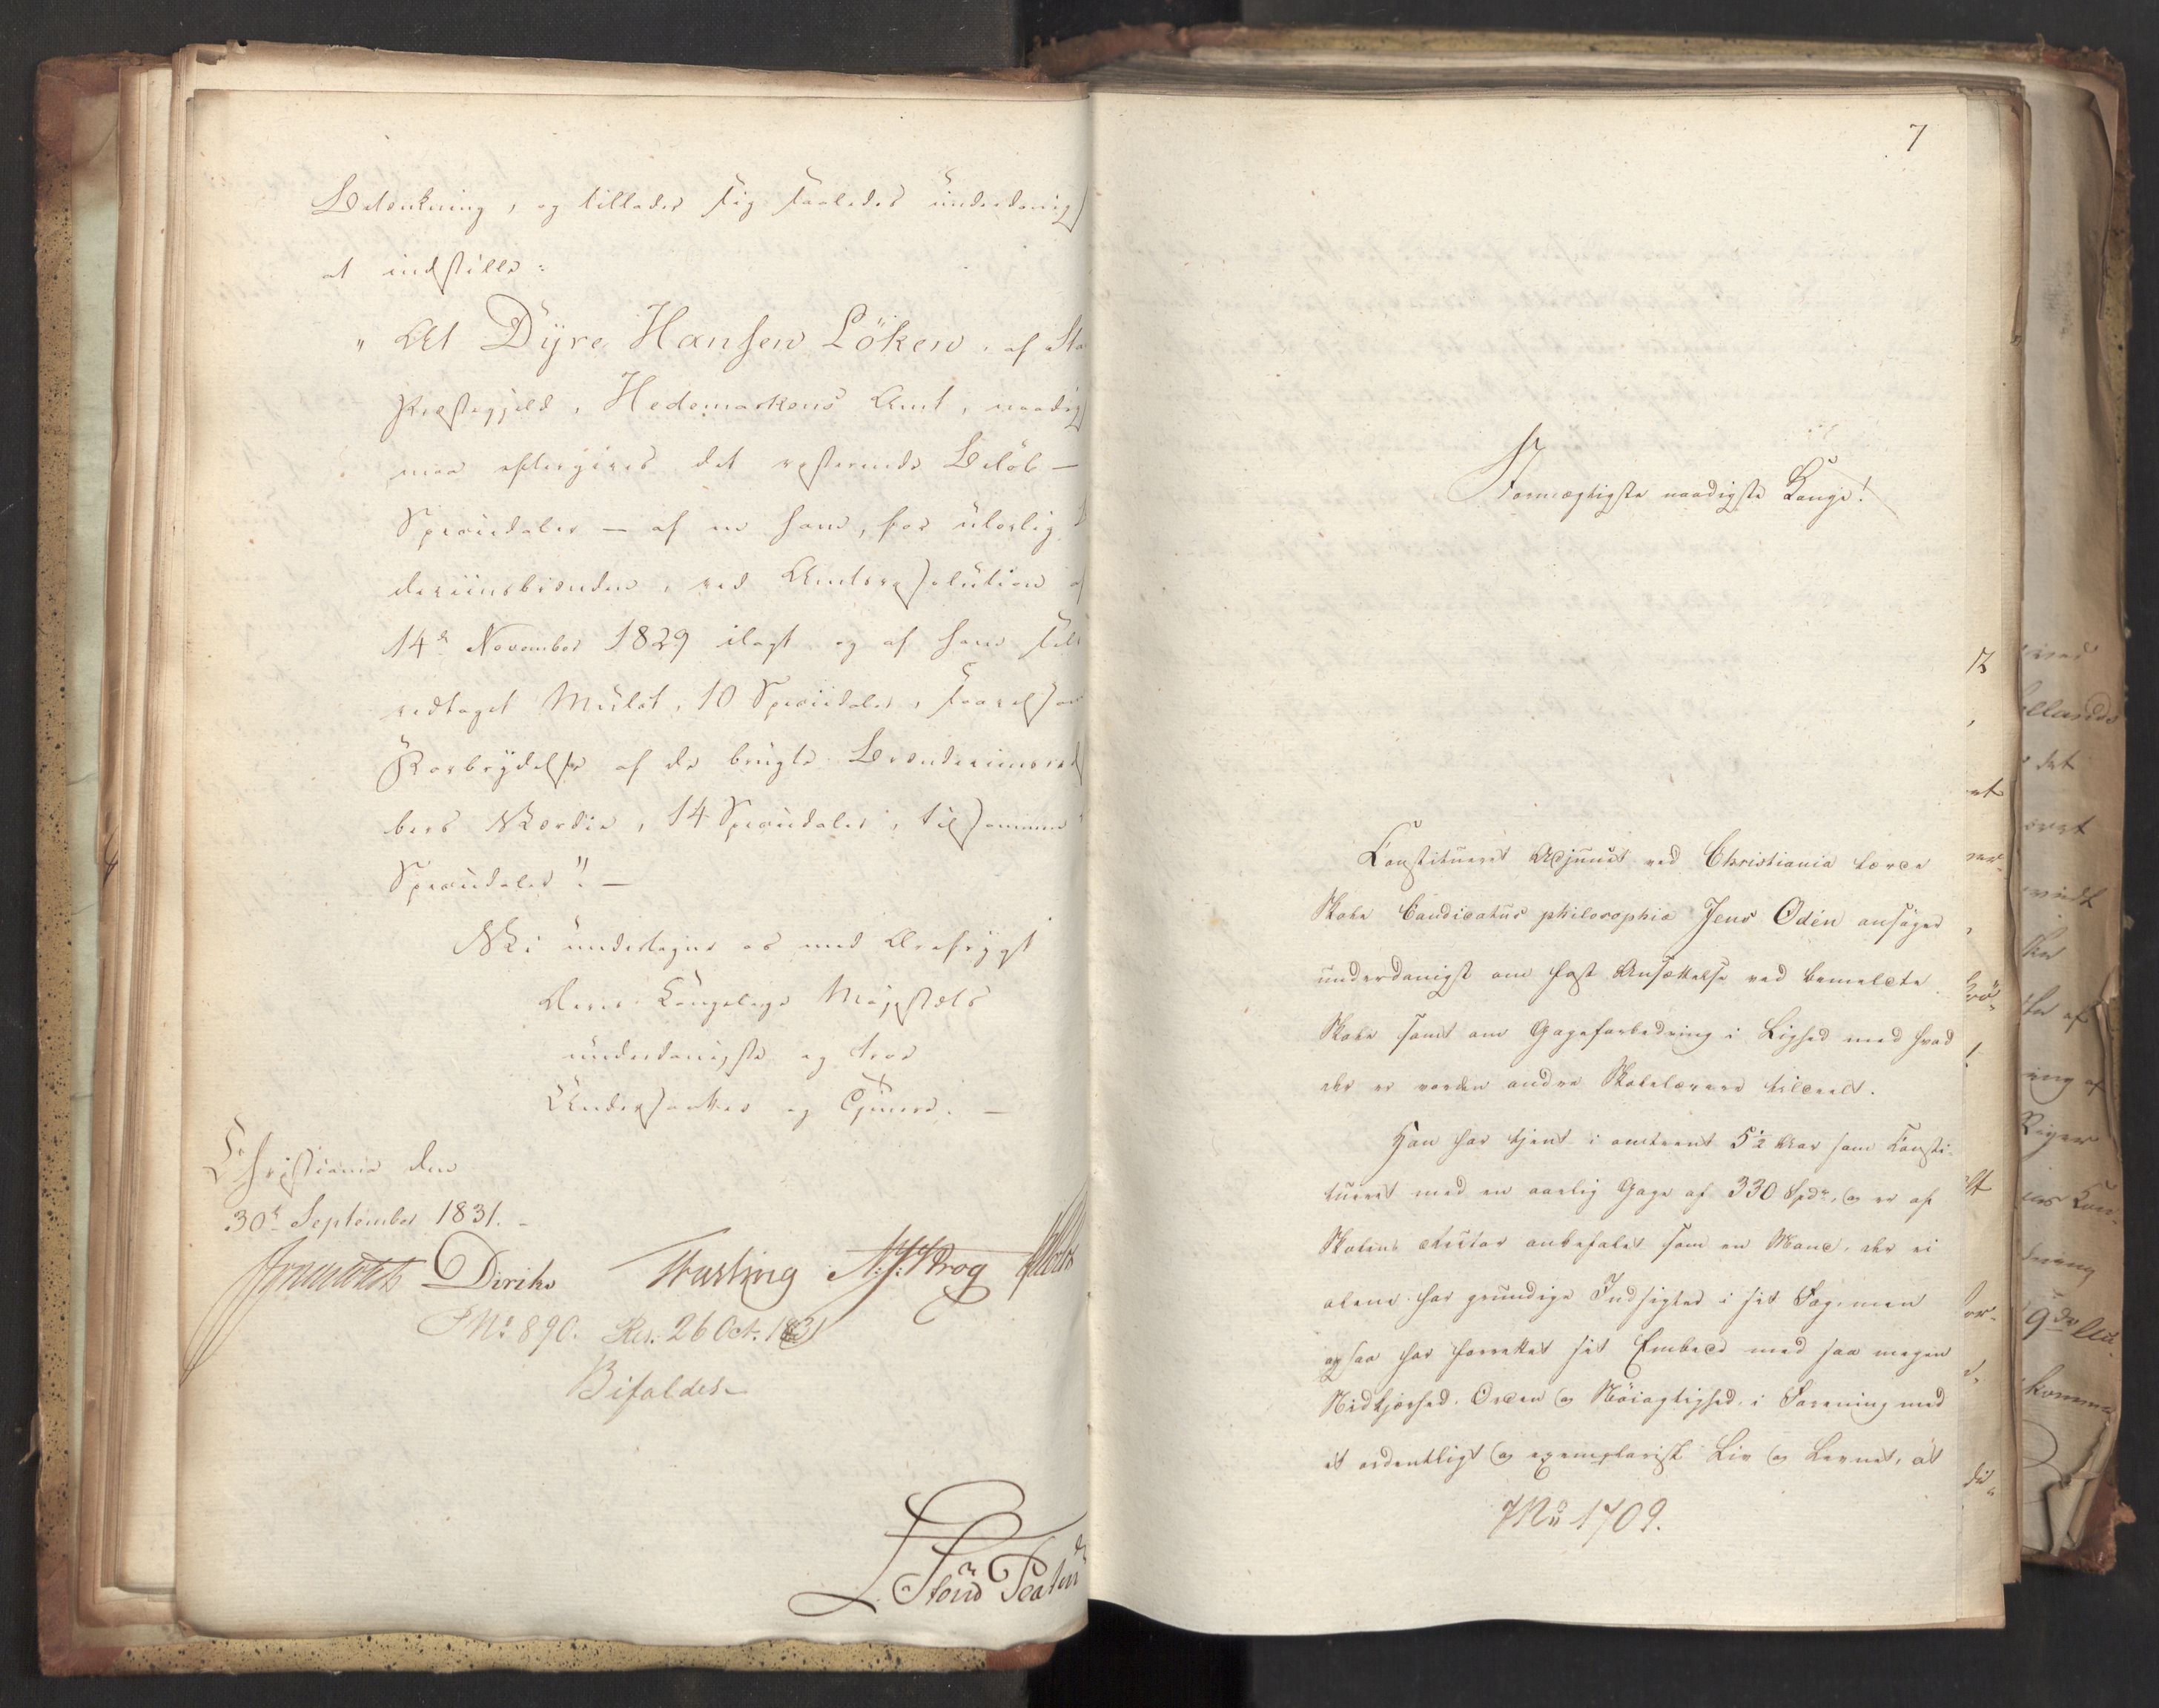 Betænkning, og tillader sig saaledes underdanigst
at indstille:
" At Dyre Hansen Löken, af
Præstegjeld, Hedemarkens Amt, naadigst
maa eftergives det resterende Belöb —
Speciedaler — af en ham, for ulovlig
deviinsbrænden, ved Amtsresolution af
14de November 1829 ilagt og af ham
vedtaget Mulct, 10 Speciedaler, saavelsom
Forbrydelse af de brugte
bers Værdie, 14 Speciedaler, tilsammen
Speciedaler". —
Vi undertegne os med Ærefrygt
Deres Kongelige Majestæts
underdanigste og troe
Undersaatter og Tjenere. —
Christiania den
30te September 1831. -
Diriks
JNo 890. Res. 26 Oct. 1831
Bifaldes
7
Stormægtigste naadigste Konge!
Constitueret Adjunct ved Christiania lærde
Skole Candidatus philosophiæ Jens Odén ansöger
underdanigst om fast Ansættelse ved bemeldte
Skole samt om Gageforbedring i Lighed med hvad
der er vorden andre Skolelærere tildeelt.
Han har tjent i omtrent 5½ Aar som Consti-
tueret med en aarlig Gage af 330 Spdr, og er af
Skolens Rector anbefalet som en Mand, der ei
alene har grundige Indsigter i sit Fag, men
ogsaa har forrettet sit Embede med saa megen
Nidkjærhed, Orden og Nöiagtighed, i Forening med
et ordentligt og exemplarisk Liv og Levnet, at
JNo 1709.